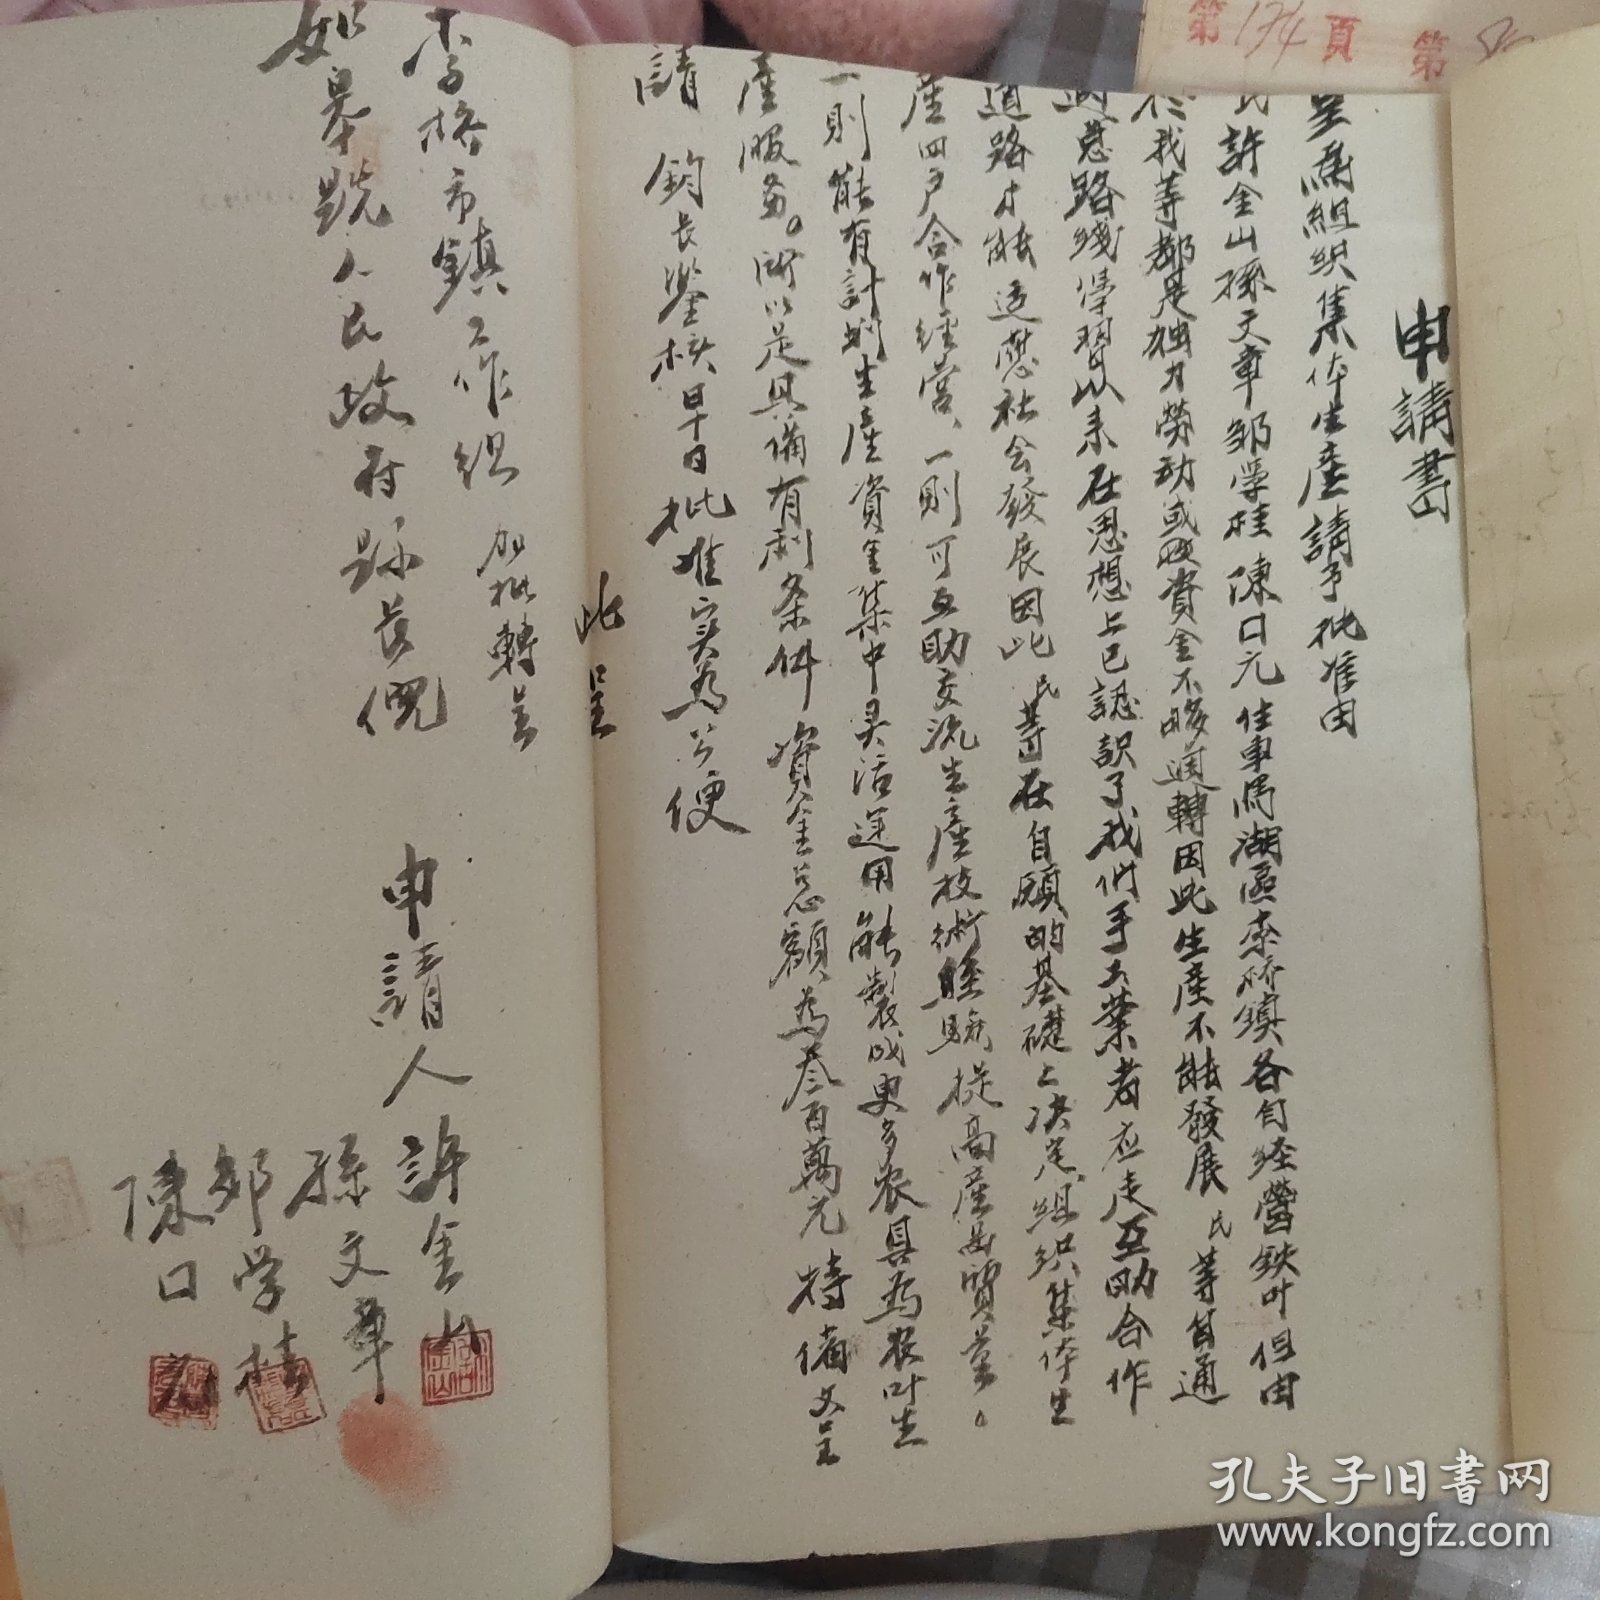 申請書
呈為組织集体生產請予批准由
民許金山孫文章邹学桂陳口元住車馬湖區李桥鎮各自经營鉄叶但由
於我等都是独力勞动或因資金不够週轉因此生產不能發展民等自通
過总路线學習以来在思想上已認識了我们手工業者应走互助合作
道路才能适應社会發展因此民等在自願的基礎上决定組织集体生
產四户合作经营、一則可互助交流生產技術經驗提高產品質量。
一則能有計划生產資金集中灵活运用能製成更多农具為农叶生
產服务。所以是具備有利条件資金总額為叁百萬元特備文呈
請 鈞長鉴核早日批准实為公便
此呈
李桥市鎮工作组 加批轉呈
如皋县人民政府县長倪
申請人許金山
孫文章
邹学桂
陳口元
第174頁 第
孔夫子旧書网
www.kongfz.com